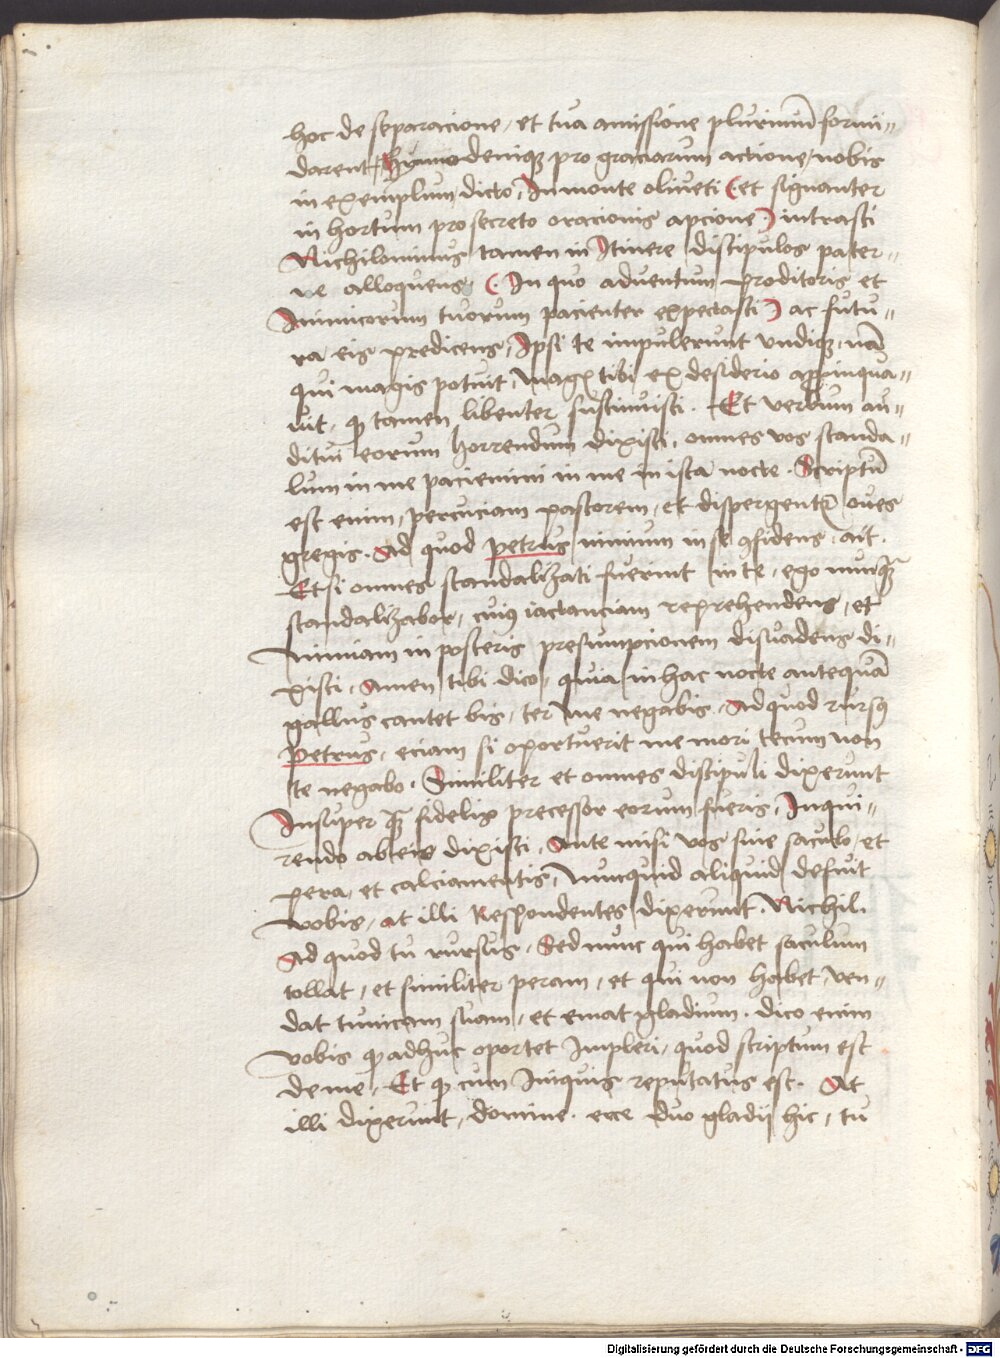 hoc de separacione, et tua amissione plurimū formi„
darent, Hymno deniqꝫ pro graciarum actione, nobis
in exemplum, dicto, In monte oliueti (et signanter
in hortum pro secreto oracionis apcione) intrasti
Nichilominus tamen in Itinere discipulos pater„
ne alloquens, (In quo aduentum proditoris et
Inimicorum tuorum pacienter expectasti) ac futu„
ra eis predicens, Ipsi te impulerunt vndiqꝫ, nā
qui magis potuit, magꝫ tibi ex desiderio appinqua„
uit, qꝫ tamen libenter sustinuisti. Et verbum au„
ditui eorum horrendum dixisti, omnes vos scanda„
lum in me paciemini in me in ista nocte. Scriptū
est enim, percuciam pastorem, et dispergentur oues
gregis. Ad quod petrus nimium in se ꝯfidens, ait.
Etsi omnes scandalizati fuerint in te, ego nunqꝫ
scandalizabor, cuiꝰ iactanciam reprehendens, et
nimiam in posteris presumpcionem disuadens di„
xisti, Amen tibi dico, quia in hac nocte antequā
gallus cantet bis, ter me negabis, Ad quod rursꝰ
Petrus, eciam si oportuerit me mori tecum non
te negabo. Similiter et omnes discipuli dixerunt
Insuper qꝫ fidelis precessor eorum fueris, Inqui„
rendo ab eis dixisti, Ante misi vos sine saculo, et
pera, et calciamentis, Nunquid aliquid defuit
vobis, at illi Respondentes dixerunt. Nichil.
Ad quod tu rursus, Sed nunc qui habet saculum
tollat, et similiter peram, et qui non habet, ven„
dat tunicam suam, et emat gladium. dico enim
vobis qꝫ adhuc oportet Impleri, quod scriptum est
de me, Et qꝫ cum Iniquis reputatus est. At
illi dixerunt, domine. ecce duo gladij hic, tu
Digitalisierung gefördert durch die Deutsche Forschungsgemeinschaft - DFG